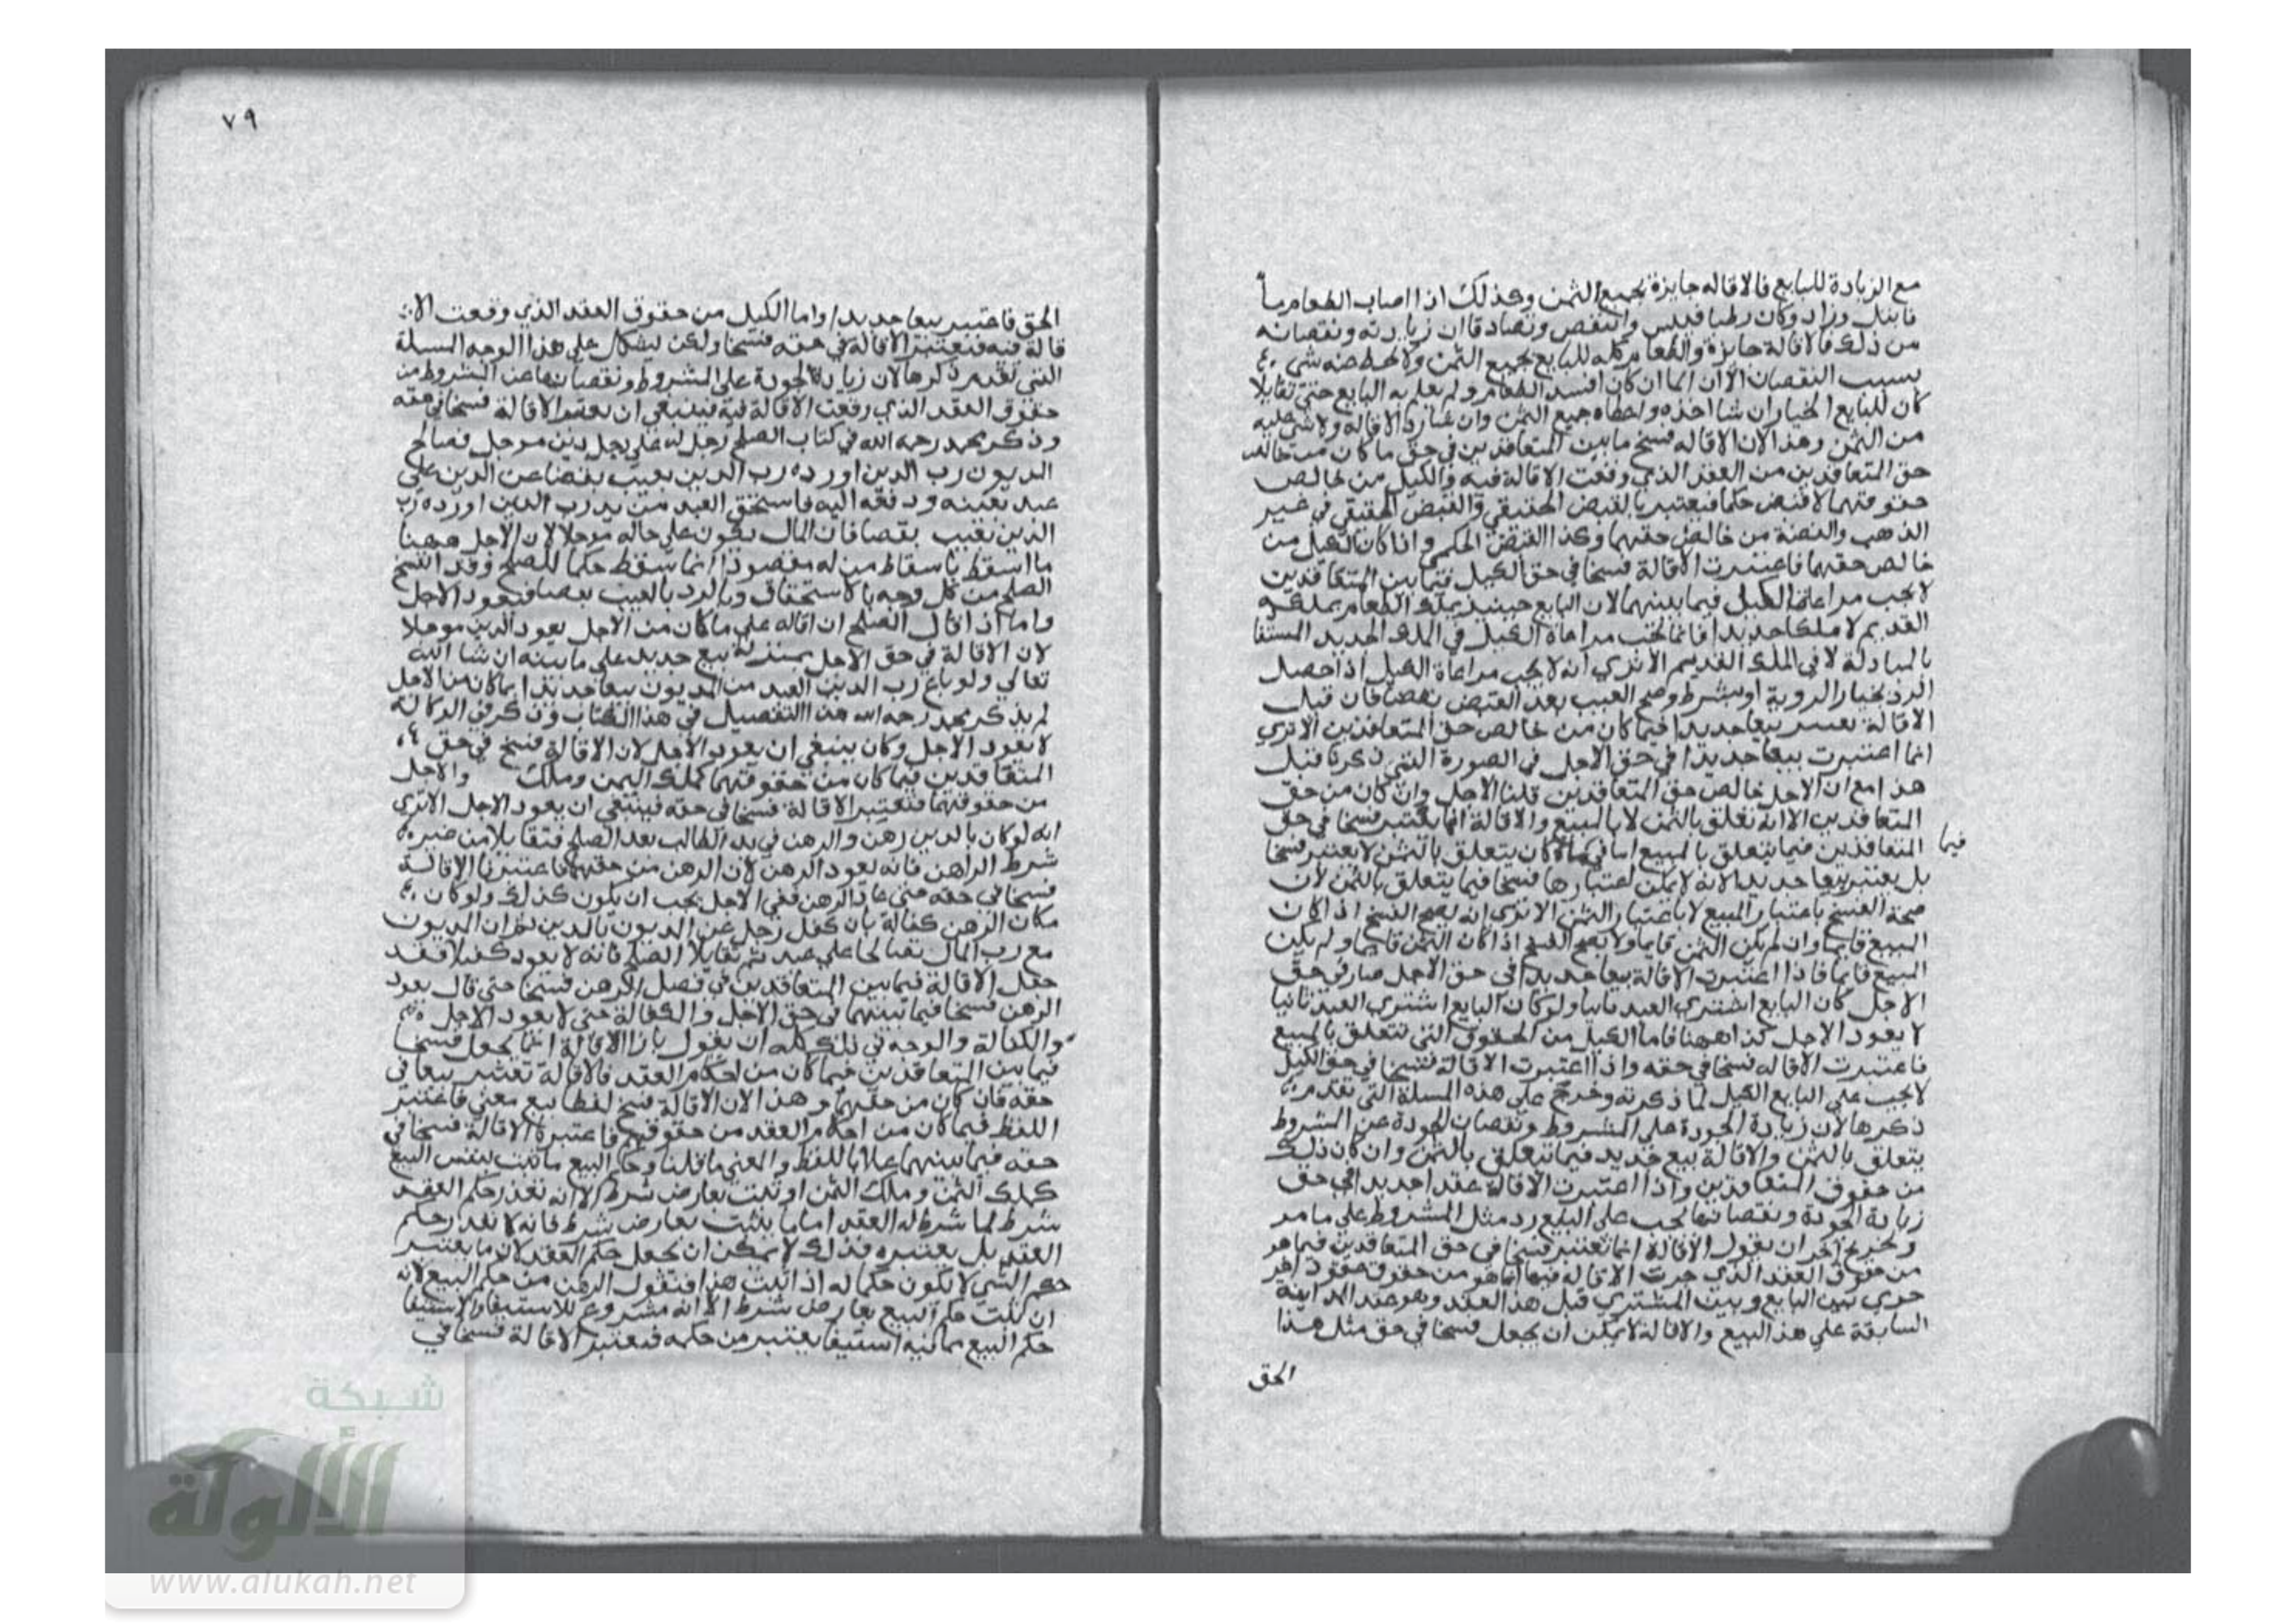 مع الزيادة للبايع فالاقاله جايزة بجميع الثمن وكذلك اذا اصاب الطعام ما
فابتل وزاد وكان رطبا فيبس وانتقص وتصادقا ان زيادته ونقصانه
من ذلك فالاقالة جايزة والطعام كله للبايع بجميع الثمن ولا يحط منه شي
بسبب النقصان الا ان الما ان كان افسد الطعام ولم يعلم به البايع حتى تقايلا
كان للبايع الخيار ان شا اخذه واعطاه جميع الثمن وان شا رد الاقالة ولا شي عليه
من الثمن وهذا لان الاقاله فسخ ما بين المتعاقدين في حق ما كان من خالص
حق المتعاقدين من العقد الذي وقعت الاقالة فيه والكيل من خالص
حقوقهما لا فيعتبر بالقبض الحقيقي والقبض الحقيقي في غير
الذهب والفضة من خالص حقهما وكذا القبض الحكمي واذا كان الكيل من
خالص حقهما فاعتبرت الاقالة فسخا في حق الكيل فيما بين المتعاقدين
لا يجب مراعاة الكيل فيما بينهما لان البايع حينيذ يملك الطعام بملكه
القديم لا ملكا جديدا فانما يجب مراعاة الكيل في الملك الجديد المستفا
بالمبادلة لا في الملك القديم الا تري انه لا يجب مراعاة الكيل اذا حصل
الرد بخيار الروية او بشرط وصح العيب بعد القبض بقضا فان قيل
الاقالة تعتبر بيعا جديدا فيما كان من خالص حق المتعاقدين الا تري
انما اعتبرت بيعا جديدا في حق الاجل في الصورة التي ذكرنا قبل
هذا مع ان الاجل خالص حق المتعاقدين قلنا الاجل وان كان من حق
المتعاقدين الا انه تعلق بالثمن لا بالمبيع والاقالة انما يعتبر فسخا في حق
المتعاقدين فيما يتعلق بالمبيع اما في ما كان يتعلق بالثمن لا يعتبر فسخا
فيما
بل يعتبر بيعا جديدا لانه لا يمكن اعتبارها فسخا فيما يتعلق بالثمن لان
صحة الفسخ باعتبار المبيع لا باعتبار الثمن الا تري انه يصح الفسخ اذا كان
المبيع قايما وان لم يكن الثمن قايما ولا يصح الفسخ اذا كان الثمن قايما ولم يكن
المبيع قايما فاذا اعتبرت الاقالة بيعا جديدا في حق الاجل صار في حق
الاجل كان البايع اشتري العبد ثانيا ولو كان البايع اشتري العبد ثانيا
لا يعود الاجل كذا ههنا فاما الكيل من الحقوق التي تتعلق بالمبيع
فاعتبرت الاقاله فسخا في حقه واذا اعتبرت الاقالة فسخا في حق الكيل
لا يجب علي البايع الكيل لما ذكرنه وخرج علي هذه المسلة التي تقدم
ذكرها لان زيادة الجودة علي المشروط ونقصان الجودة عن المشروط
يتعلق بالثمن والاقالة بيع جديد فيما يتعلق بالثمن وان كان ذلك
من حقوق المتعاقدين واذا اعتبرت الاقالة عقدا جديدا في حق
زيادة الجودة ونقصانها يجب علي البايع رد مثل المشروط علي ما مر
وتخريج اخر ان يقول الاقالة انما تعتبر فسخا في حق المتعاقدين فيما هو
من حقوق العقد الذي جرت الاقالة فيه اما هو من حقوق عقود اخر
جري بين البايع وبين المشتري قبل هذا العقد وهو عقد المداينة
السابقة علي هذا البيع والاقالة لا يمكن ان يجعل فسخا في حق مثل هذا
الحق
٧٩
الحق فاعتبر بيعا جديدا واما الكيل من حقوق العقد الذي وقعت الا
قالة فيه فتعتبر الاقالة في حقه فسخا ولكن يشكل علي هذا الوجه المسلة
التي تقدم ذكرها لان زيادة الجودة علي المشروط ونقصانها عن المشروط من
حقوق العقد الذي وقعت الاقالة فيه فينبغي ان يعتبر الاقالة فسخا في حقه
وذكر محمد رحمه الله في كتاب الصلح رجل له علي رجل دين موجل فصالح
المديون رب الدين او رده رب الدين بعيب بقضا عن الدين علي
عبد بعينه ودفعه اليه فاستحق العبد من يد رب الدين او رده رب
الدين بعيب بقضا فان المال يكون علي حاله موجلا لان الاجل ههنا
ما اسقط باسقاط من له مقصودا انما سقط حكما للصلح وقد انفسخ
الصلح من كل وجه بالاستحقاق وبالرد بالعيب بقضا فيعود الاجل
واما اذا قال الصلح ان اقاله علي ما كان من الاجل يعود الدين موجلا
لان الاقالة في حق الاجل بمنزلة بيع جديد علي ما نبينه ان شا الله
تعالي ولو باع رب الدين العبد من المديون بيعا جديدا بما كان من الاجل
لم يذكر محمد رحمه الله هذا التفصيل في هذا الكتاب وذكر في الوكالة
لا يعود الاجل وكان ينبغي ان يعود الاجل لان الاقالة فسخ في حق
المتعاقدين فيما كان من حقوقهما كملك اليمن وملك والاجل
من حقوقهما فتعتبر الاقالة فسخا في حقه فينبغي ان يعود الاجل الا تري
انه لو كان بالدين رهن والرهن في يد الطالب بعد الصلح فتقايلا من غير
شرط الراهن فانه يعود الرهن لان الرهن من حقهما فاعتبرنا الاقالة
فسخا في حقه حتي عاد الرهن ففي الاجل يجب ان يكون كذلك ولو كان
مكان الرهن كفالة بان كفل رجل عن المديون بالدين ثم ان المديون
مع رب المال تصالحا علي عبد ثم تقايلا الصلح فانه لا يعود كفيلا فقد
جعل الاقالة فيما بين المتعاقدين في فصل الرهن فسخا حتي قال يعود
الرهن فسخا فيما بينهما في حق الاجل والكفالة حتي لا يعود الاجل
والكفالة والوجه في ذلك كله ان يقول بان الاقالة انما يجعل فسخا
فيما بين المتعاقدين فيما كان من احكام العقد فالاقالة تعتبر بيعا في
حقه فان كان من حقهما وهذا لان الاقالة فسخ لفظا بيع معني فاعتبر
اللفظ فيما كان من احكام العقد من حقوقهم فاعتبرة الاقالة فسخا في
حقه فيما بينهما عملا باللفظ والمعني ما قلنا وحكم البيع ما ثبت بنفس البيع
كملك الثمن وملك الثمن او ثبت بعارض شرط الا انه تعذر حكم العقد
شرط لما شرط له العقد اما ما يثبت بعارض شرط فانه لا تعذر حكم
العقد بل يعتبره فذلك لا يمكن ان يجعل حكم العقد لان ما يعتبر
حكم الشي لا يكون حكما له اذا ثبت هذا فنقول الرهن من حكم البيع لانه
ان ثبت حكم البيع بعارض شرط الا انه مشروع للاستيفا والاستيفا
حكم البيع استيفا يعتبر من حكمه فيعتبر الاقالة فسخا في
شبكة
الألوكة
www.alukah.net